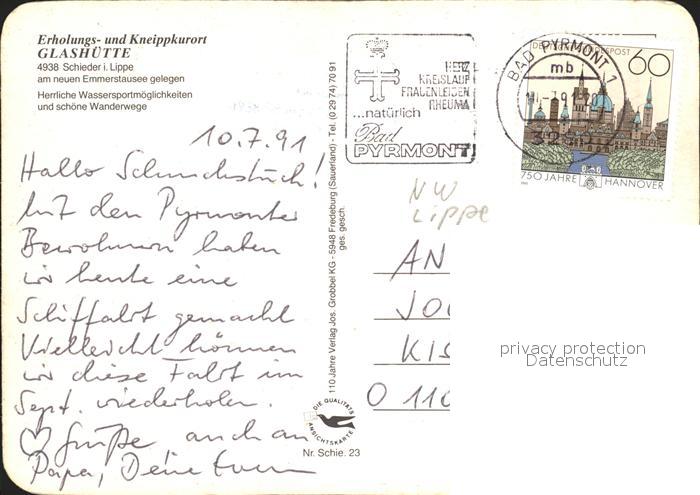 Erholungs- und Kneippkurort
GLASHÜTTE
4938 Schieder i. Lippe
am neuen Emmerstausee gelegen
Herrliche Wassersportmöglichkeiten
und schöne Wanderwege
10.7.91
Hallo Schmuckstück!
Mit den Pyrmonter
Bewohnern haben
wir heute eine
Schiffahrt gemacht
Vielleicht können
wir diese Fahrt im
Sept. wiederholen.
♡ Grüße auch an
Papa, Deine
110 Jahre Verlag Jos. Grobbel KG - 5948 Fredeburg (Sauerland) - Tel. (0 29 74) 70 91
ges. gesch.
DIE QUALITÄTS
ANSICHTSKARTE
Nr. Schie. 23
HERZ
KREISLAUF
FRAUENLEIDEN
RHEUMA
...natürlich
Bad
PYRMONT
BAD PYRMONT 1
mb
DEUTSCHE BUNDESPOST
60
750 JAHRE HANNOVER
NW
Lippe
AN
JO
KIS
O 110
privacy protection
Datenschutz